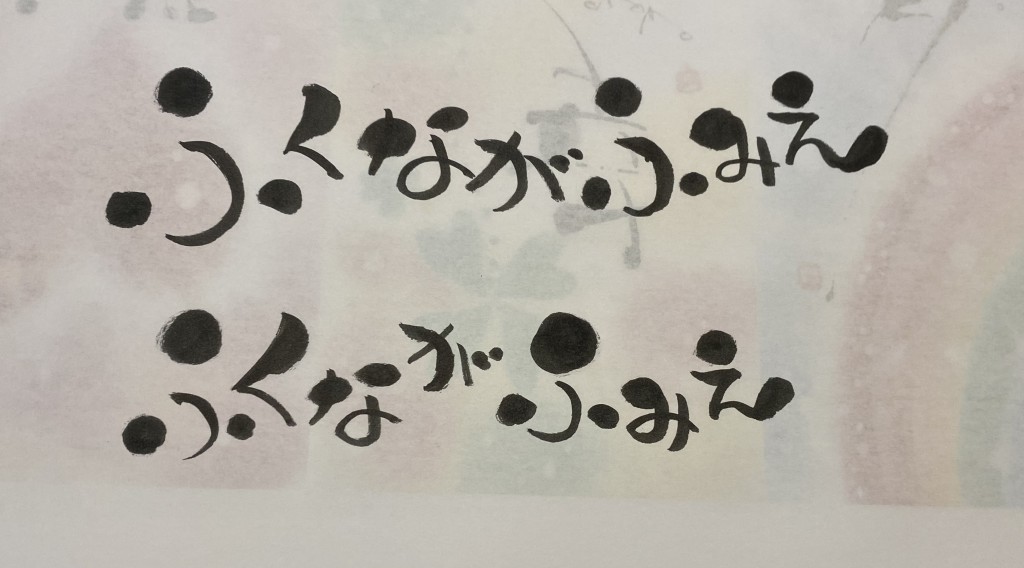 ふくながふみえ
ふくながふみえ